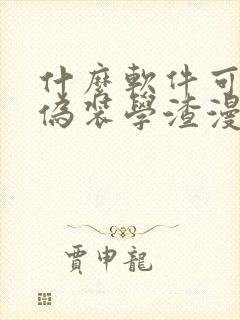 什麼軟件可
偽裝學渣漫
賈申龍